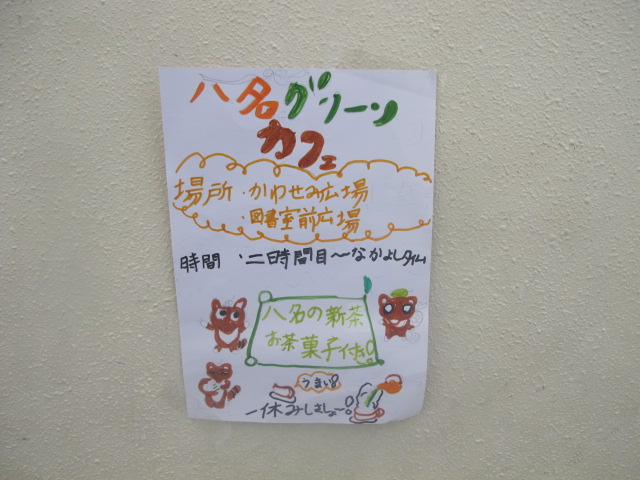 八名グリーン
カフェ
場所・かわせみ広場
・図書室前広場
時間・二時間目〜なかよしタイム
八名の新茶
お茶菓子付き!
うまい!
一休みしましょ〜!